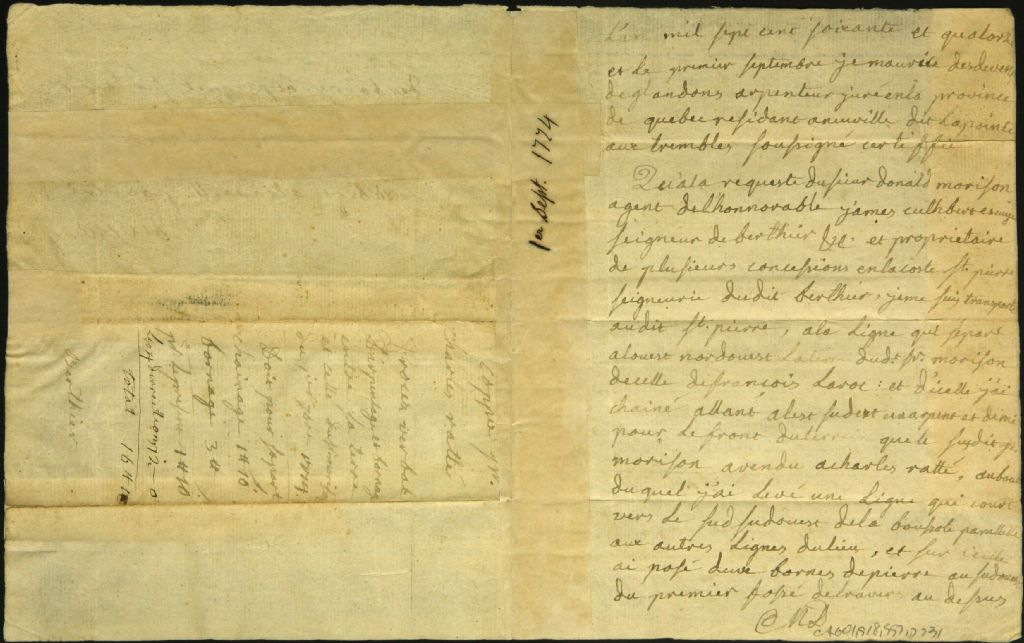 L'an mil sept cent soixante et quatorz
et Le premier septembre je maurice desdevens
de glandons arpenteur jure en la province
de quebec residant aneuville dit Lapointe
aux trembles soussigné certiffie
Qu'ala requeste du sieur donald morison
agent del'honnorable james cuthbert
seigneur de berthier &c. et proprietaire
de plusieurs concessions enlacoste St. pierre
seigneurie dudit berthier, jeme suis transporté
audit St. pierre, ala Ligne qui separe
alouest nordouest Laterre dudt. sr. morison
decelle defrancois Laroc: et d'icelle j'ai
chainé allant alest sudest unarpent et demi
pour Le front duterrein que le susdit sr.
morison avendu acharles ratté, aubout
duquel j'ai Levé une Ligne qui court
vers Le sud sudouest dela boussole parallelle
aux autres Lignes dulieu, et sur icelle
ai posé deux bornes depierre au sudouest
du premier fossé detravers au dessus
MD
1er Sept. 1774
Coppie pr.
charles ratté
Procès verbal
D'arpentage et bornage
entre sa terre
et celle du sr. morison
1774
Doit pour sa part
chainage 1# 10
bornage 3#
Berthier